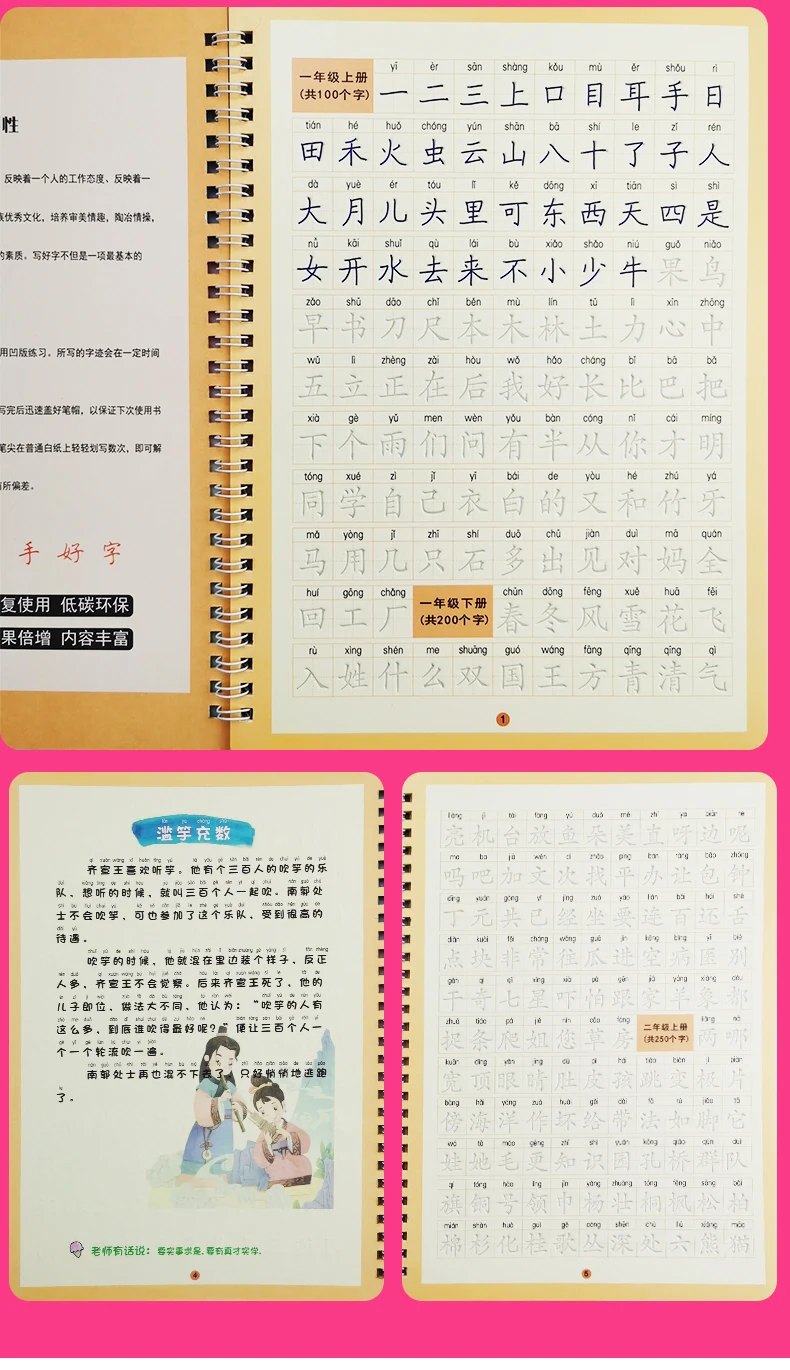 性
反映着一个人的工作态度、反映着一
族优秀文化，培养审美情趣，陶冶情操，
的素质。写好字不但是一项最基本的
用凹版练习。所写的字迹会在一定时间
写完后迅速盖好笔帽，以保证下次使用书
笔尖在普通白纸上轻轻划写数次，即可解
有所偏差。
手好字
复使用 低碳环保
果倍增 内容丰富
一年级上册
(共100个字)
yī èr sān shàng kǒu mù ěr shǒu rì
一 二 三 上 口 目 耳 手 日
tián hé huǒ chóng yún shān bā shí le zǐ rén
田 禾 火 虫 云 山 八 十 了 子 人
dà yuè ér tóu lǐ kě dōng xī tiān sì shì
大 月 儿 头 里 可 东 西 天 四 是
nǚ kāi shuǐ qù lái bù xiǎo shǎo niú guǒ niǎo
女 开 水 去 来 不 小 少 牛 果 鸟
zǎo shū dāo chǐ běn mù lín tǔ lì xīn zhōng
早 书 刀 尺 本 木 林 土 力 心 中
wǔ lì zhèng zài hòu wǒ hǎo cháng bǐ bā bǎ
五 立 正 在 后 我 好 长 比 巴 把
xià gè yǔ men wèn yǒu bàn cóng nǐ cái míng
下 个 雨 们 问 有 半 从 你 才 明
tóng xué zì jǐ yī bái de yòu hé zhú yá
同 学 自 己 衣 白 的 又 和 竹 牙
mǎ yòng jǐ zhī shí duō chū jiàn duì mā quán
马 用 几 只 石 多 出 见 对 妈 全
huí gōng chǎng
回 工 厂
一年级下册
(共200个字)
chūn dōng fēng xuě huā fēi
春 冬 风 雪 花 飞
rù xìng shén me shuāng guó wáng fāng qīng qīng qì
入 姓 什 么 双 国 王 方 青 清 气
1
滥竽充数
齐宣王喜欢听竽。他有个三百人的吹竽的乐
队，想听的时候，就叫三百个人一起吹。南郭处
士不会吹竽，可也参加了这个乐队，受到很高的
待遇。
吹竽的时候，他就混在里边装个样子，反正
人多，齐宣王不会觉察。后来齐宣王死了，他的
儿子即位，做法大不同，他认为：“吹竽的人有
这么多，到底谁吹得最好呢？”便让三百个人一
个一个轮流吹一遍。
南郭处士再也混不下去了，只好悄悄地逃跑
了。
老师有话说：要实事求是，要有真才实学。
4
亮 机 台 放 鱼 朵 美 直 呀 边 呢
吗 吧 加 文 火 找 平 办 让 包 钟
丁 元 共 已 经 坐 要 连 百 还 舌
点 块 非 常 往 瓜 进 空 病 医 别
干 奇 七 星 吓 怕 跟 家 羊
捉 条 爬 姐 您 草 房
二年级上册
(共250个字)
两 哪
宽 顶 眼 睛 肚 皮 孩 跳 变 极 片
傍 海 洋 作 坏 给 带 法 如 脚 它
娃 她 毛 更 知 识 园 孔 桥 群 队
旗 铜 号 领 巾 杨 壮 桐 枫 松 柏
棉 杉 化 桂 歌 丛 深 处 六 熊 猫
5